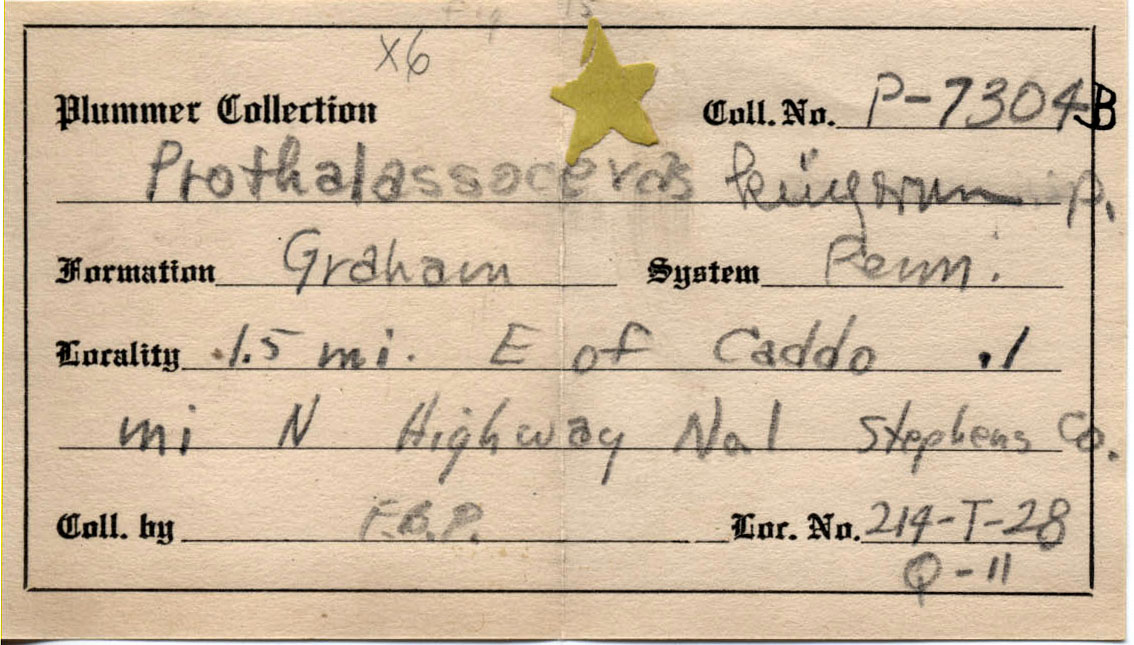 x6
Plummer Collection Coll. No. P-7304B
Prothalassoceras
Formation Graham System Penn.
Locality .1.5 mi. E of Caddo .1
mi N Highway No 1 Stephens Co.
Coll. by F.B.P. Loc. No. 214-T-28
Q-11